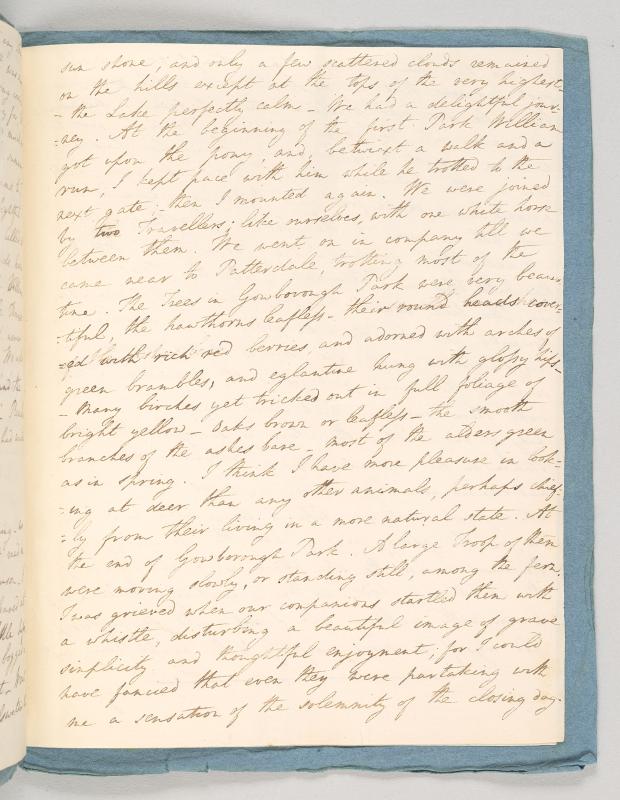 sun shone, and only a few scattered clouds remained
on the hills except at the tops of the very highest
- the Lake perfectly calm - We had a delightful jour-
=ney. At the beginning of the first Park William
got upon the pony, and, betwixt a walk and a
run, I kept pace with him while he trotted to the
next gate - then I mounted again. We were joined
by two Travellers, like ourselves, with one white horse
between them. We went on in company till we
came near to Patterdale, trotting most of the
time. The Trees in Gowborough Park were very beau-
=tiful, the hawthorns leafless - their round heads cover-
=ed with rich red berries, and adorned with arches of
green brambles, and eglantine hung with glossy hips -
- Many birches yet tricked out in full foliage of
bright yellow - oaks brown or leafless - the smooth
branches of the ashes bare - most of the alders green
as in spring. I think I have more pleasure in look-
=ing at deer than any other animals, perhaps chief-
=ly from their living in a more natural state. At
the end of Gowborough Park. A large Troop of them
were moving slowly, or standing still, among the fern.
I was grieved when our companions startled them with
a whistle, disturbing a beautiful image of grave
simplicity and thoughtful enjoyment; for I could
have fancied that even they were partaking with
me a sensation of the solemnity of the closing day.